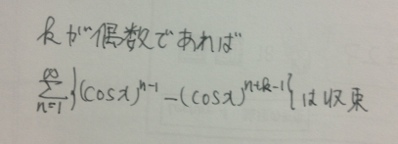 kが偶数であれば
∑_{n=1}^{∞}{(cosx)^{n-1}-(cosx)^{n+k-1}}は収束